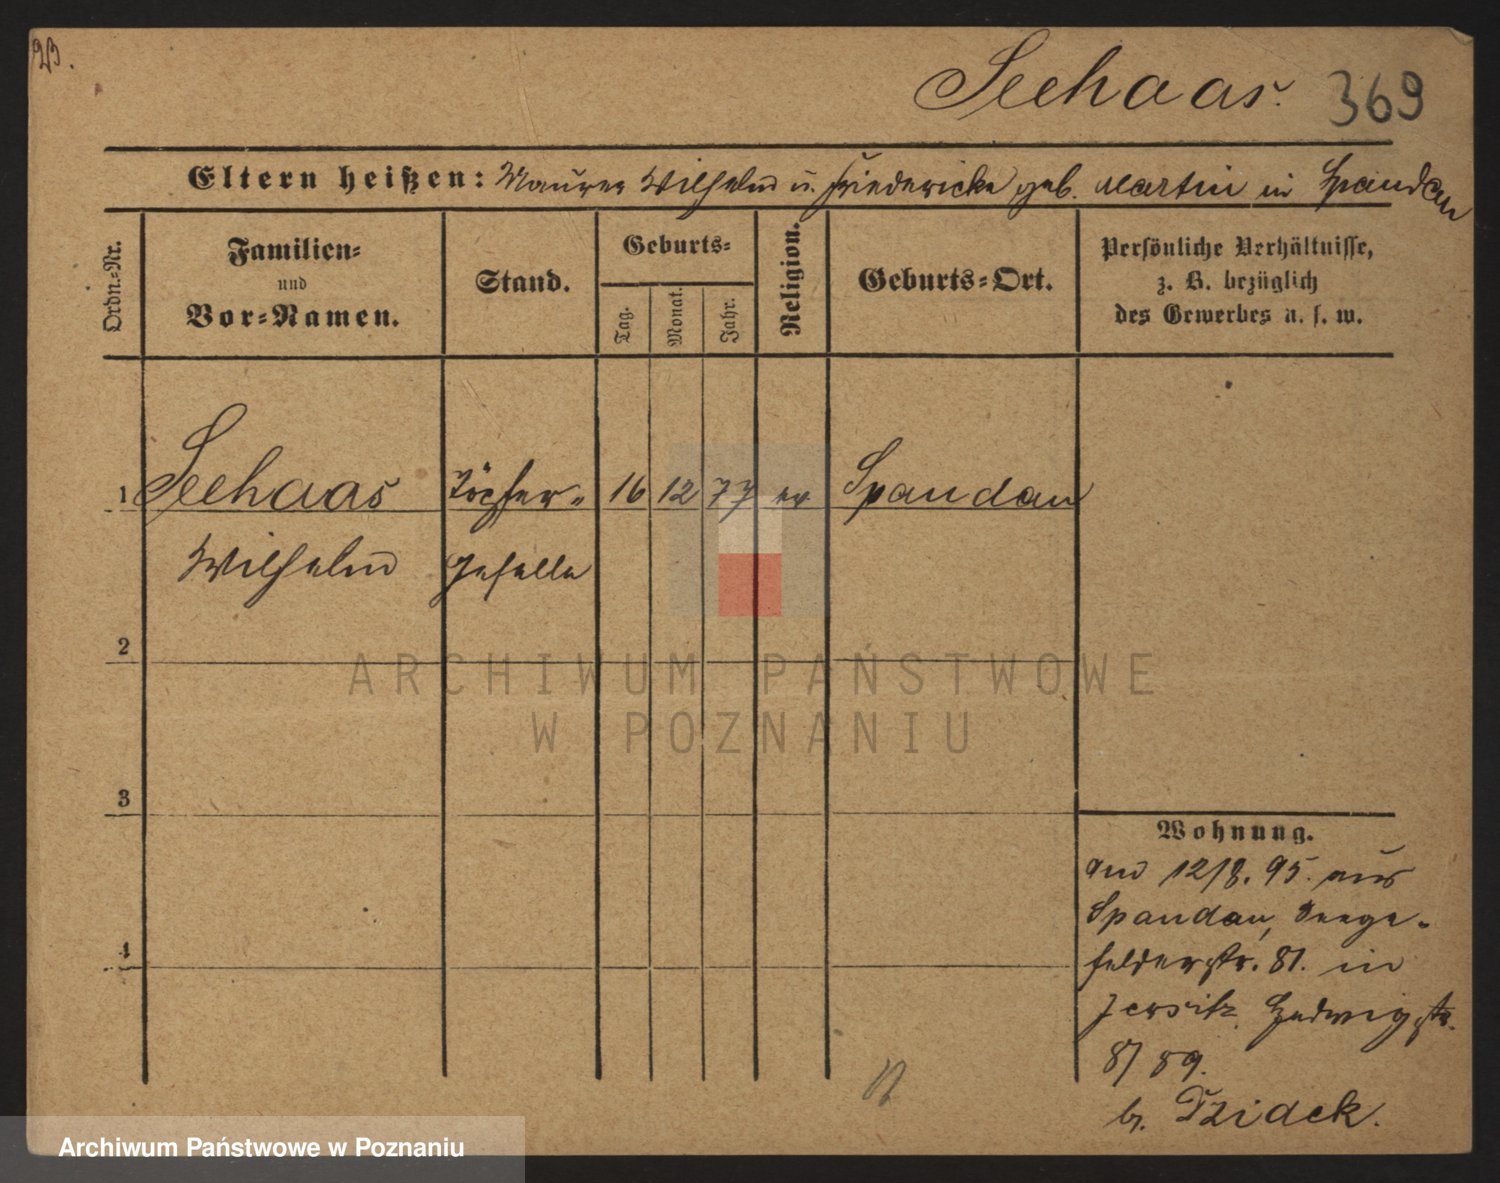 23.
Seehaas. 369
Eltern heißen: Maurer Wilhelm u. Friedericke geb. Martin in Spandau
Ordn.-Nr.
Familien-
und
Vor-Namen.
Stand.
Geburts-
Tag.
Monat.
Jahr.
Religion.
Geburts-Ort.
Persönliche Verhältnisse,
z. B. bezüglich
des Gewerbes u. s. w.
1 Seehaas Töpfer- 16 12 77 ev Spandau
Wilhelm Geselle
2
3
4
Wohnung.
am 12/8. 95. aus
Spandau, Seege-
felderstr. 81. in
Jersitz, Hedwigstr.
b. Tzideck.
ARCHIWUM PAŃSTWOWE
W POZNANIU
Archiwum Państwowe w Poznaniu